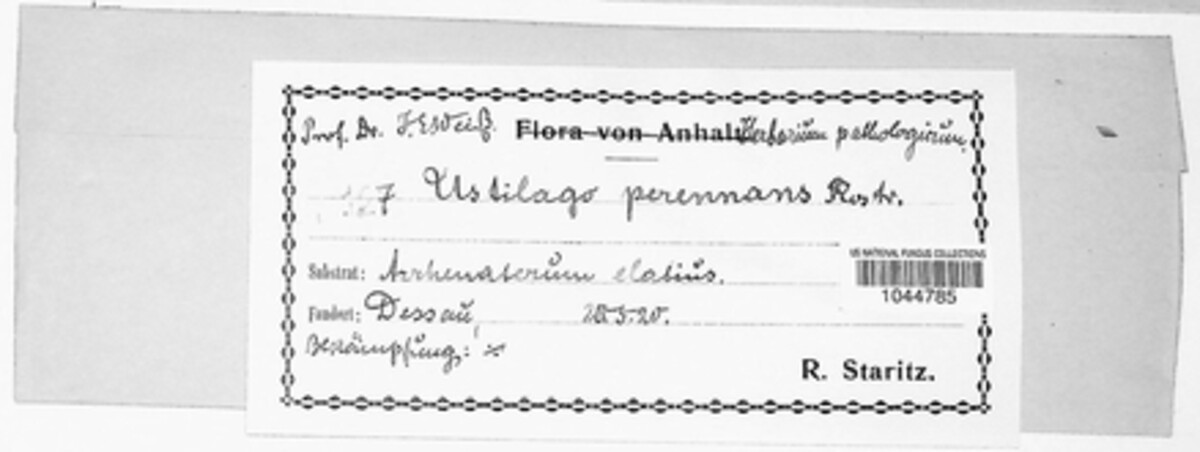 Prof. Dr. J. E. Weiß. Flora von Anhalt Herbarium pathologicum.
7 Ustilago perennans Rostr.
US NATIONAL FUNGUS COLLECTIONS
1044785
Substrat: Arrhenaterum elatius.
Fundort: Dessau,
Bekämpfung:
R. Staritz.